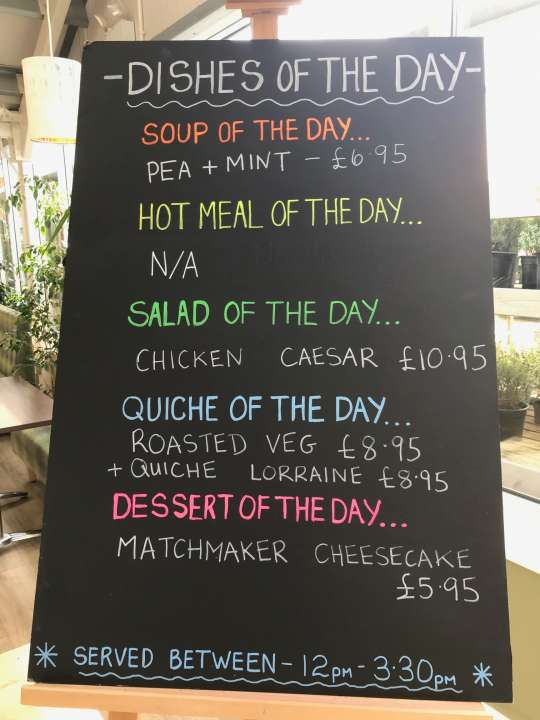 -DISHES OF THE DAY-
SOUP OF THE DAY...
PEA + MINT - £6.95
HOT MEAL OF THE DAY...
N/A
SALAD OF THE DAY...
CHICKEN CAESAR £10.95
QUICHE OF THE DAY...
ROASTED VEG £8.95
+ QUICHE LORRAINE £8.95
DESSERT OF THE DAY...
MATCHMAKER CHEESECAKE
£5.95
* SERVED BETWEEN - 12pm - 3.30pm *